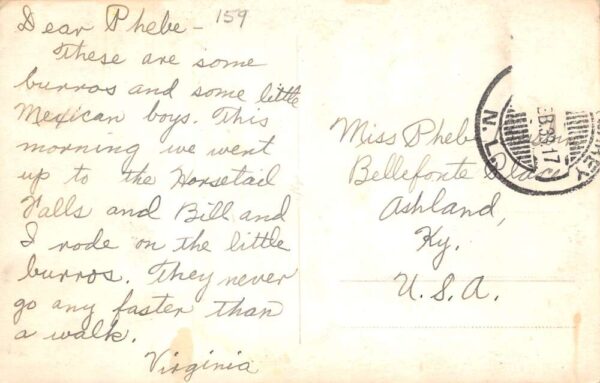 Dear Phebe - 159
These are some
burros and some little
Mexican boys. This
morning we went
up to the Horsetail
Falls and Bill and
I rode on the little
burros. They never
go any faster than
a walk.
Virginia
Miss Phebe
Bellefonte Place
Ashland,
Ky.
U.S.A.
N.L.